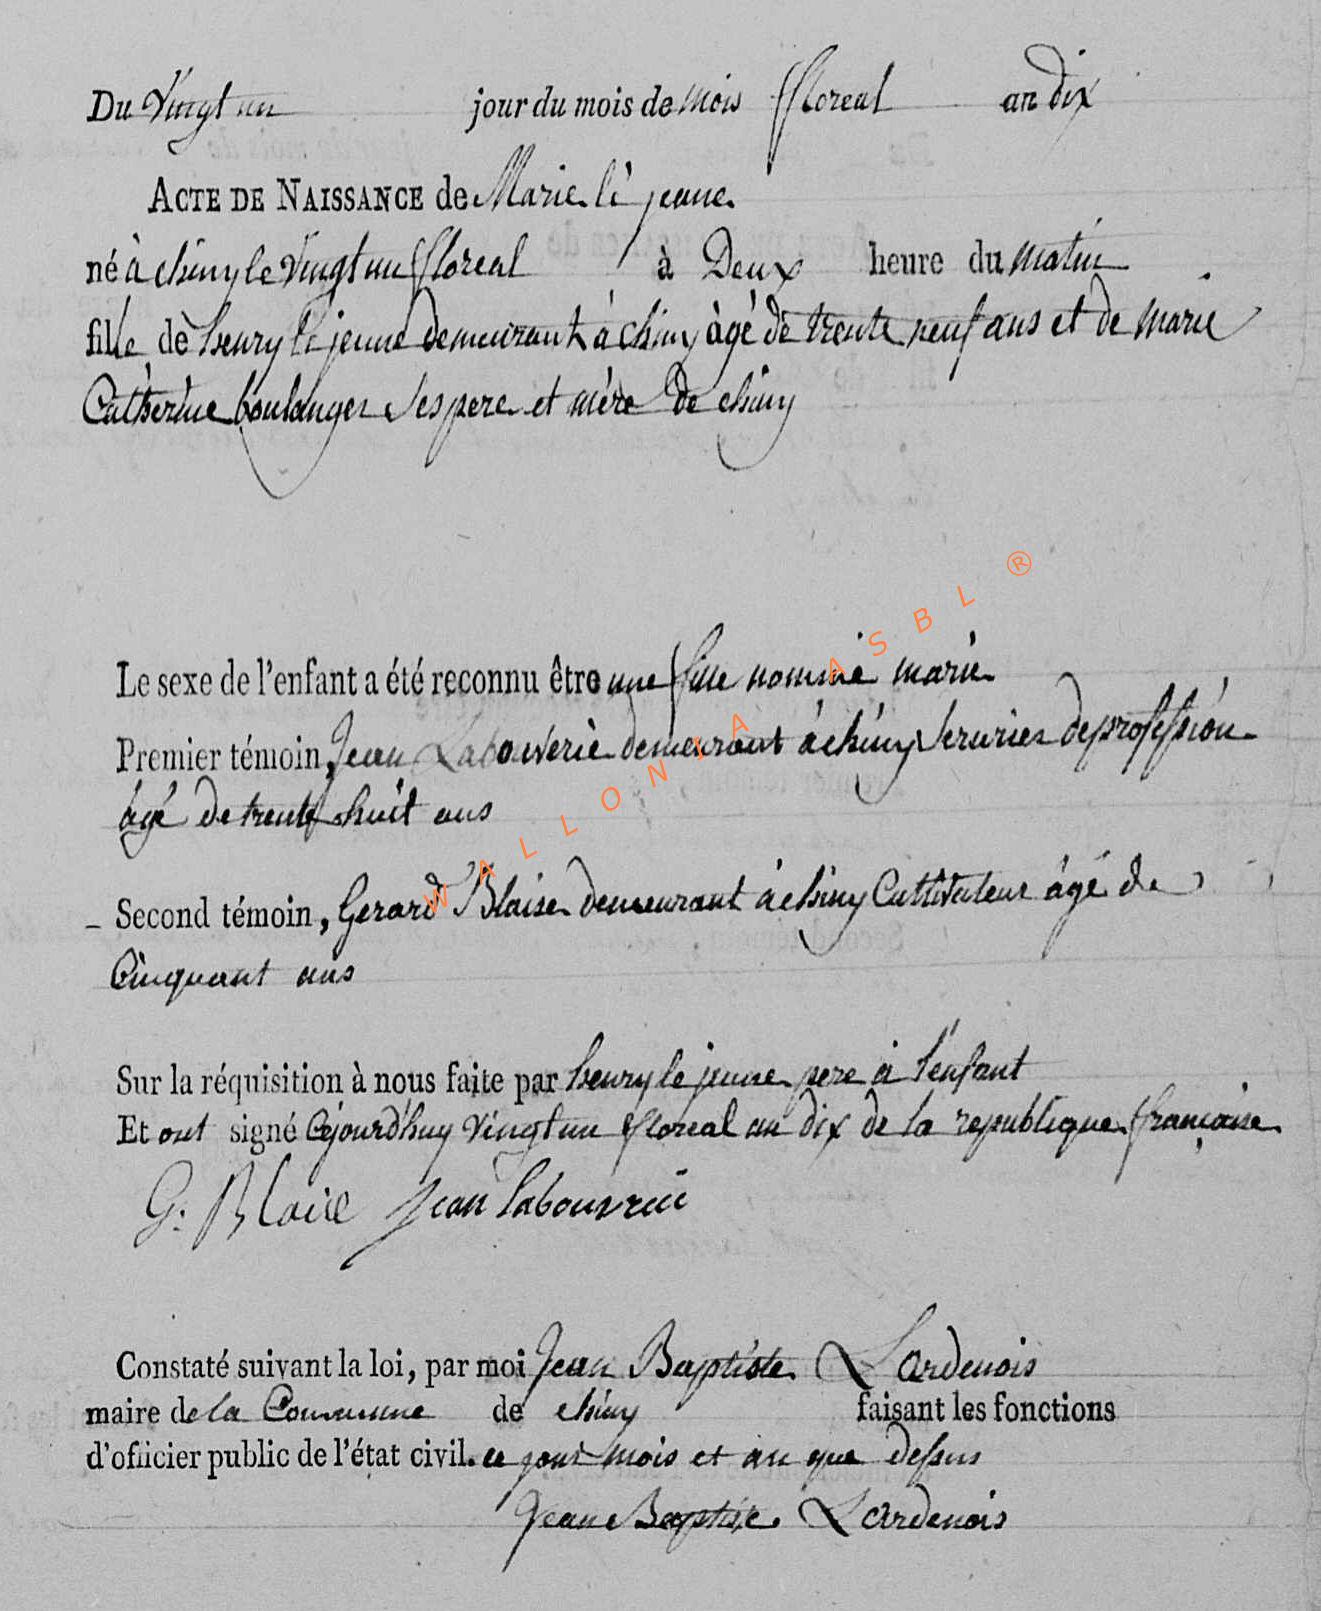 Du Vingt un jour du mois de mois floreal an dix
ACTE DE NAISSANCE de Marie le jeune
né à chiny le Vingt un floreal à Deux heure du matin
fille de henry le jeune demeurant à chiny àgé de trente neuf ans et de marie
Catherine boulanger ses pere et mére de chiny
Le sexe de l'enfant a été reconnu être une fille nommé marie
Premier témoin, Jean Labouverie demeurant à chiny seruries de profession
âgé de trente huit ans
Second témoin, Gerard Blaise demeurant à chiny Cultivateur àgé de
Cinquant ans
Sur la réquisition à nous faite par henry le jeune pere à l'enfant
Et ont signé Cejourd'huy Vingt un floreal an dix de la republique française
G: Blaise Jean labouvrie
Constaté suivant la loi, par moi Jean Baptiste Lardenois
maire de la Commune de chiny faisant les fonctions
d'officier public de l'état civil. ce jour mois et an que dessus
Jean Baptiste Lardenois
WALLONIA ASBL ®